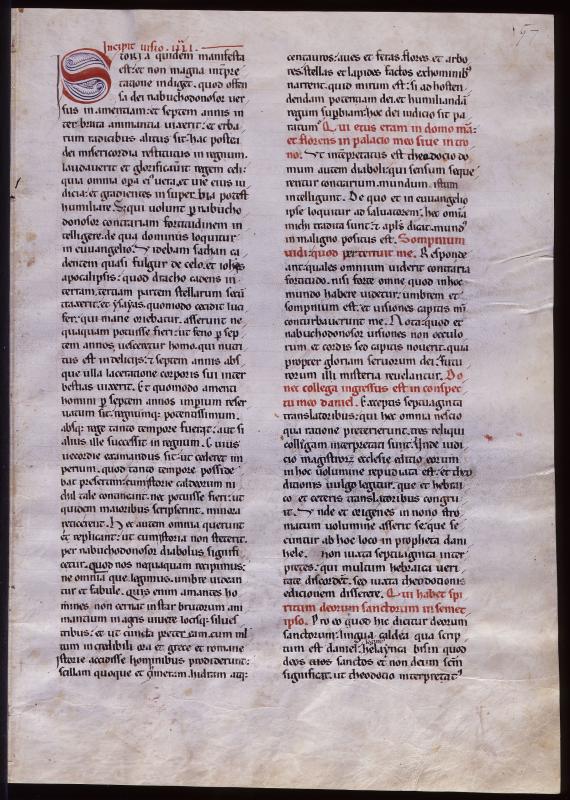 Incipit uisio. IIII.
Storia quidem manifesta
est: et non magna intpre
tatione indiget. quod offen
sa dei nabuchodonosor uer
sus in amentiam: et septem annis in
ter bruta animantia uixerit: et erba
rum radicibus alitus sit. hac postea
dei misericordia restitutus in regnum.
laudauerit et glorificauit regem celi:
quia omnia opa ei uera, et uie eius iu
dicia: et gradientes in superbia potest
humiliare. Sequi uolunt p nabucho
donosor contrariam fortitudinem in
telligere. de qua dominus loquitur
in euuangelio. Videbam sathan ca
dentem quasi fulgur de celo. et iohes
apocalipsis: quod dracho cadens in
terram. tertiam partem stellarum secu
traxerit: et ysayas. quomodo cecidit luci
fer: qui mane oriebatur. asserunt ne
quaquam potuisse fieri: ut feno p sep
tem annos uesceretur homo. qui nutri
tus est in deliciis: et septem annis abs
que ulla laceratione corporis sui inter
bestias uixerit. Et quomodo amenti
homini p septem annos imperium reser
uatum sit: regnumque potentissimum.
absque rege tanto tempore fuerit: aut si
alius ille successit in regnum.
uecordie exximandus sit: ut cederet im
perium. quod tanto tempore posside
bat presertim: cum istorie caldeorum ni
chil tale contineant. nec potuisse fieri: ut
quidem maioribus scripserint. minora
reticerent. Hec autem omnia querunt
et replicant: ut cum istoria non steterit.
per nabuchodonosor diabolus signifi
cetur. quod nos nequaquam recipimus:
ne omnia que legimus. umbre uidean
tur et fabule. quis enim amantes ho
mines non cernat instar brutorum ani
mantium in agris uiuere locisque silues
tribus: et ut cuncta preter eam. cum ml
tum incredibili ora et grece et romane
istorie accidisse hominibus prodiderunt:
scillam quoque et chimeram. hidram atque
centauros: aues et feras. flores et arbo
res. stellas et lapides factos ex hominib
narrent. quid mirum est: si ad hosten
dendam potentiam dei. et humiliandam
regum supbiam: hec dei iudicio sit pa
ratum. Qui etus eram in domo mea:
et florens in palacio meo siue in tro
no. Ut interpretatus est theodocio do
mum autem diaboli: qui sensum seque
rentur contrarium. mundum istum
intelligunt. De quo et in euuangelio
ipse loquitur ad saluatorem. hec omia
michi tradita sunt: et apls dicit. mundus
in maligno positus est. Sompnium
uidi: quod perterruit me. Responde
ant. quales omnium uiderit contraria
fortitudo. nisi forte omne quod in hoc
mundo habere uidetur. umbrem et
sompnium est: et uisiones capitis mi
conturbauerunt me. Nota: quod et
nabuchodonosor uisiones non oculo
rum et cordis sed capitis nouerit. quia
propter gloriam seruorum dei. futu
rorum illi misteria reuelantur. Do
nec collega ingressus est in conspec
tu meo daniel. Exceptis septuaginta
translatoribus: qui hec omnia nescio
qua ratione preterierunt. tres reliqui
collegam interpretati sunt. Unde iudi
cio magistrorum ecclesie editio eorum
in hoc uolumine repudiata est: et theo
ditionis uulgo legitur. que et hebrai
co et ceteris translatoribus congru
it. Unde et origenes in nono stro
matum uolumine asserit se: que se
cuntur ab hoc loco in propheta dani
hele. non iuxta septuaginta inter
pretes: qui multum hebraica ueri
tate discordet. sed iuxta theodotionis
edicionem disserere. Qui habet spi
ritum deorum sanctorum in semet
ipso. Pro eo quod hic dicitur deorum
sanctorum: lingua caldea qua scrip
tum est daniel. helaynca bisin quod
deos cuos sanctos et non deum scm
significat. ut theodocio interpretat